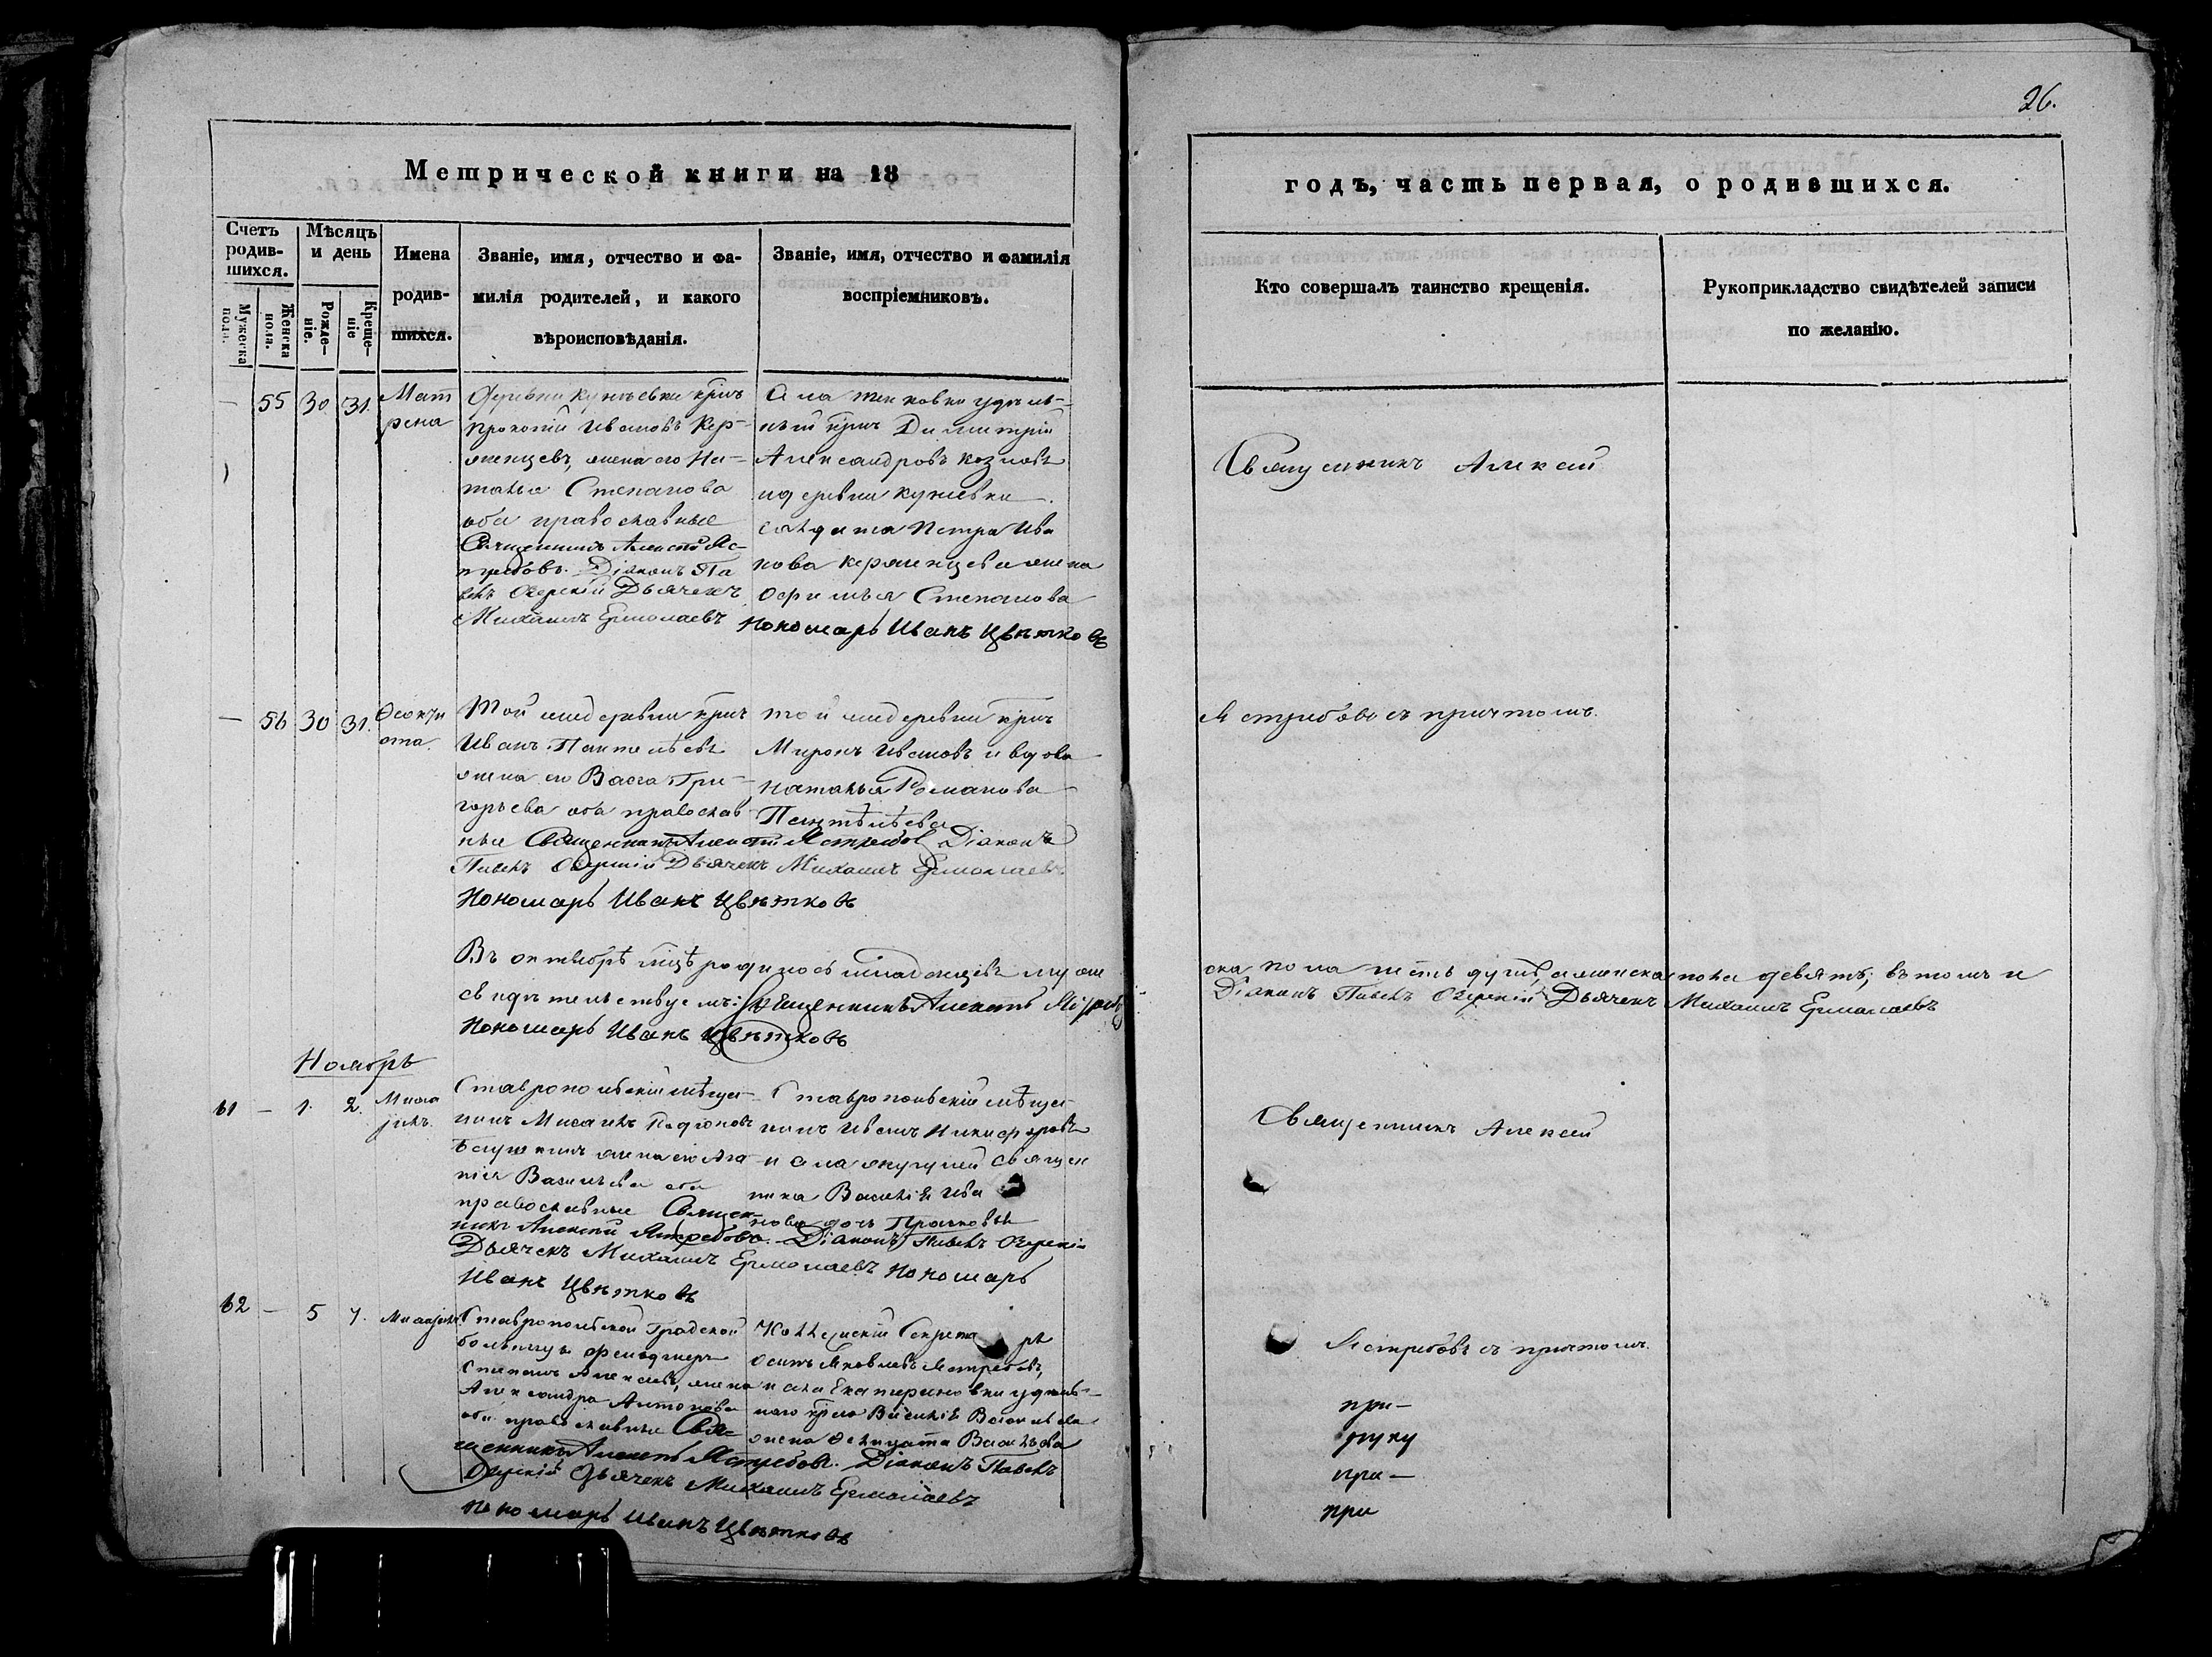 26.
Метрической книги на 18
годъ, часть первая, о родившихся.
Счетъ родив-шихся.
Мужеска пола.
Женска пола.
Мѣсяцъ и день
Рожде-ніе.
Креще-ніе
Имена
родив-
шихся.
Званіе, имя, отчество и фа-
милія родителей, и какого
вѣроисповѣданія.
Званіе, имя, отчество и фамилія
воспріемниковъ.
Кто совершалъ таинство крещенія.
Рукоприкладство свидѣтелей записи
по желанію.
— 55 30 31.
Мат
рена
Деревни Кунѣевки
Прокопій Ивановъ Кер-
женцевъ, жена его На-
талья Степанова
оба православные
Священникъ Алексѣй Яс-
требовъ. Діаконъ Па
велъ Озерскій Дьячекъ
Михаилъ Ермолаевъ
удѣль-
ный Димитрій
Александровъ Козловъ
и деревни Кунѣевки
солдата Петра Ива
нова Керженцева жена
Офимья Степанова
Пономарь Иванъ Цвѣтковъ
Священникъ Алексѣй
— 56 30 31.
Феокти
ста.
Той же деревни
Иванъ Пантелѣевъ
жена его Васса Гри-
горьева оба православ
ные Священникъ Алексѣй Ястребовъ Діаконъ
Павелъ Озерскій Дьячекъ Михаилъ Ермолаевъ
Пономарь Иванъ Цвѣтковъ
той же деревни
Миронъ Ивановъ и вдова
Наталья Романова
Пантѣлѣева
Ястребовъ съ причтомъ.
Въ октябрѣ родилось младенцевъ муже
ска пола пять душъ, а женска пола девять; въ томъ и
свидѣтельствуемъ: Священникъ Алексѣй Ястребовъ
Діаконъ Павелъ Озерскій Дьячекъ Михаилъ Ермолаевъ
Пономарь Иванъ Цвѣтковъ
Ноябрь
61 — 1. 2.
Миха
илъ.
Ставропольскій мѣща-
нинъ
жена его
Васильева оба
православные Священ-
никъ Алексѣй Ястребовъ. Діаконъ Павелъ Озерскій
Дьячекъ Михаилъ Ермолаевъ Пономарь
Иванъ Цвѣтковъ
Ставропольскій мѣща-
нинъ Иванъ Никифоровъ
и села священ
ника Василія Ива
нова дочь
Священникъ Алексѣй
62 — 5 7.
Михаилъ
Ставропольской Градской
больницы фельдшеръ
Степанъ Алексѣевъ, жена
Александра Антонова
оба православные Свя-
щенникъ Алексѣй Ястребовъ. Діаконъ Павелъ
Озерскій Дьячекъ Михаилъ Ермолаевъ
Пономарь Иванъ Цвѣтковъ
Коллежскій Секретарь
Осипъ Яковлевъ Ястребовъ,
и села Екатериновки удѣль-
наго Василія Васильева
жена Васильева
Ястребовъ съ причтомъ.
при—
руку
при—
при